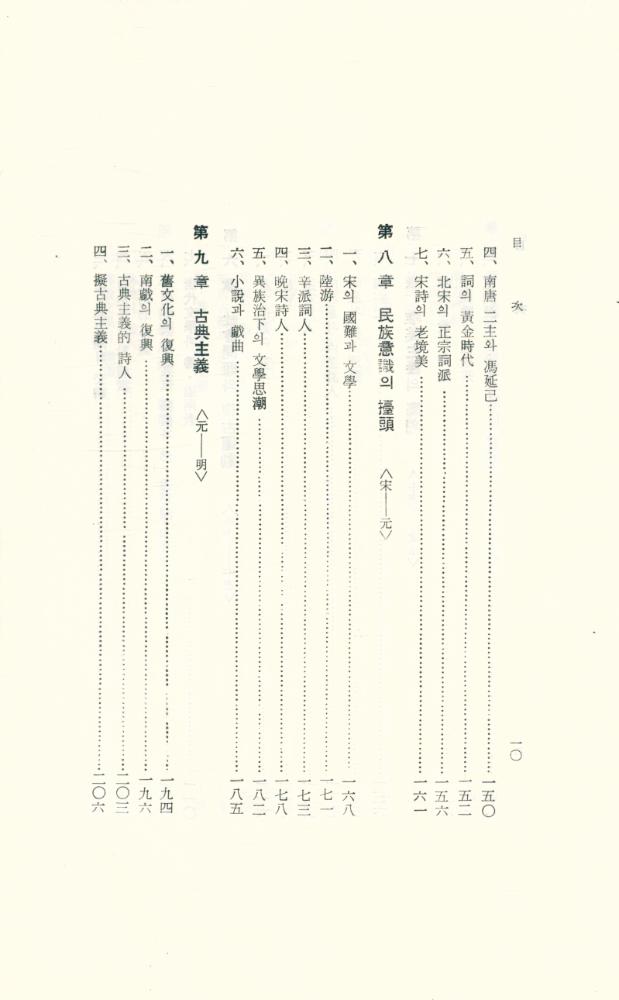 目 次 一〇
四、南唐 二主와 馮延己 一五〇
五、詞의 黃金時代 一五二
六、北宋의 正宗詞派 一五六
七、宋詩의 老境美 一六一
第八章 民族意識의 擡頭 〈宋——元〉
一、宋의 國難과 文學 一六八
二、陸游 一七一
三、辛派詞人 一七三
四、晩宋詩人 一七八
五、異族治下의 文學思潮 一八二
六、小說과 戱曲 一八五
第九章 古典主義 〈元——明〉
一、舊文化의 復興 一九四
二、南戱의 復興 一九六
三、古典主義的 詩人 二〇三
四、擬古典主義 二〇六